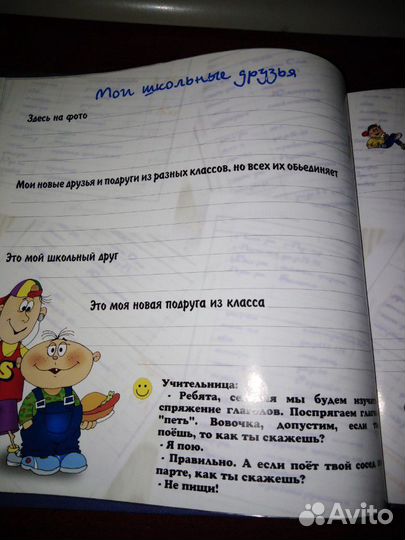 Мои школьные друзья
Здесь на фото
Мои новые друзья и подруги из разных классов, но всех их объединяет
Это мой школьный друг
Это моя новая подруга из класса
S
Учительница:
- Ребята, мы будем
спряжение глаголов. Поспрягаем
"петь". Вовочка, допустим, если
поёшь, то как ты скажешь?
- Я пою.
- Правильно. А если поёт твой сосед
парте, как ты скажешь?
- Не пищи!
Avito